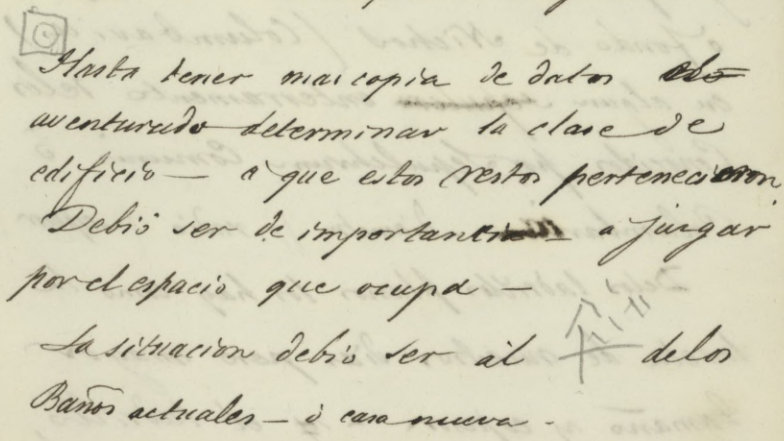 Hasta tener mas copia de datos es
aventurado determinar la clase de
edificio — á que estos restos pertenecieron
Debió ser de importancia — a juzgar
por el espacio que ocupa —
La situacion debio ser al de los
Baños actuales — ó casa nueva .